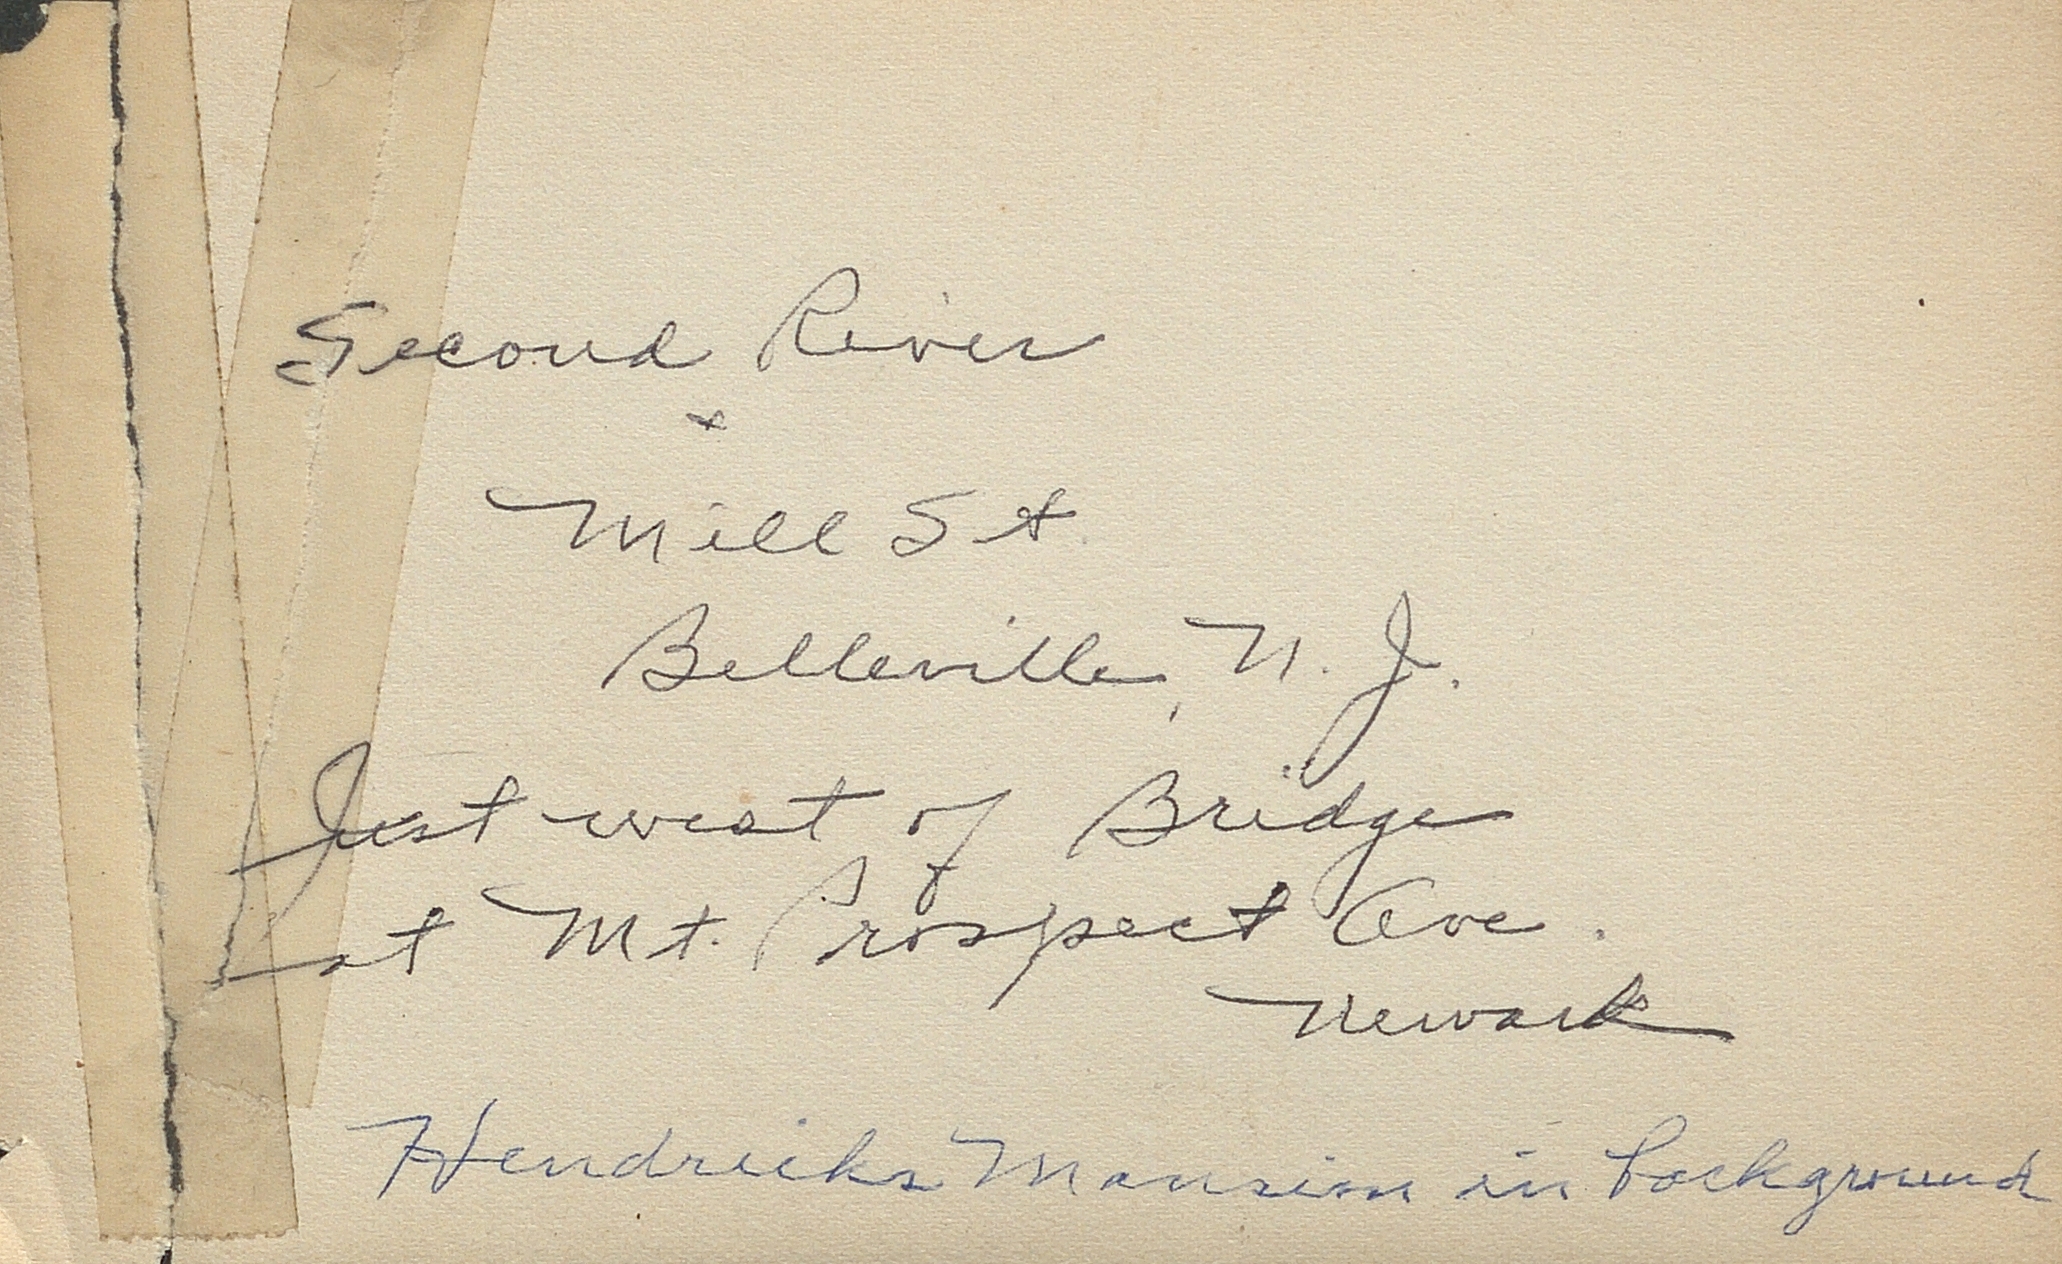 Second River
+
Mill St.
Belleville, N. J.
Just west of Bridge
at Mt. Prospect Ave.
Newark
Hendricks Mansion in background